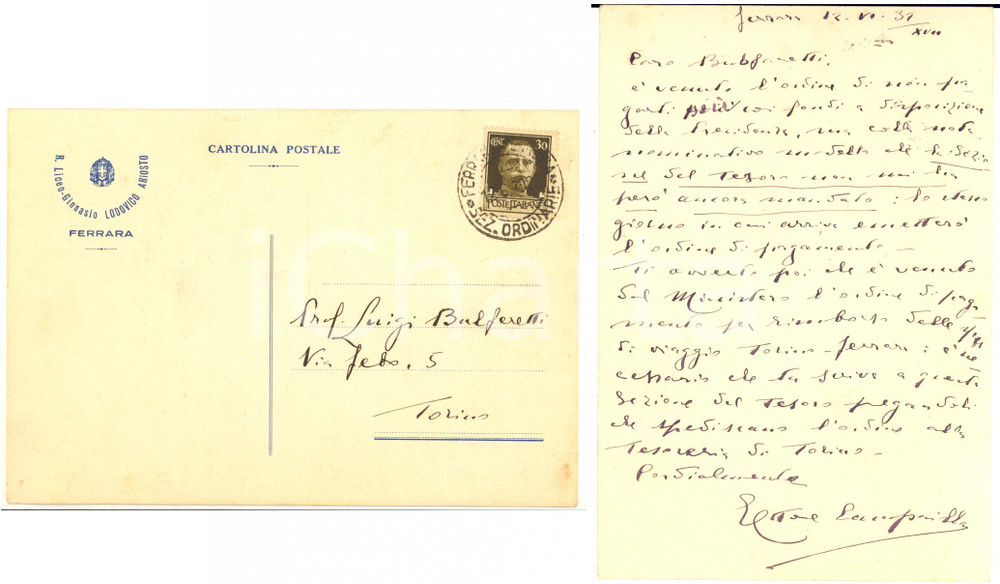 R. Liceo-Ginnasio LODOVICO ARIOSTO
FERRARA
CARTOLINA POSTALE
CENT. 30
POSTE ITALIANE
FERRARIA
SEZ. ORDINARIE
Prof. Luigi Bulferetti
Via Febo, 5
Torino
Ferrara 12-VI-39
XVII
Caro Bulferetti,
è venuto l'ordine di non pa-
garti più coi fondi a disposizione
della Presidenza, ma colla nota
nominativa modello che la Sezio
ne del Tesoro non mi ha
però ancora mandato: lo stesso
giorno in cui arriva emetterò
l'ordine di pagamento –
Ti avverto poi che è venuto
dal Ministero l'ordine di paga
mento per rimborso delle spese
di viaggio Torino-Ferrara: è ne
cessario che tu scriva a questa
Sezione del Tesoro pregandoli
che spediscano l'ordine alla
Tesoreria di Torino –
Cordialmente
Ettore